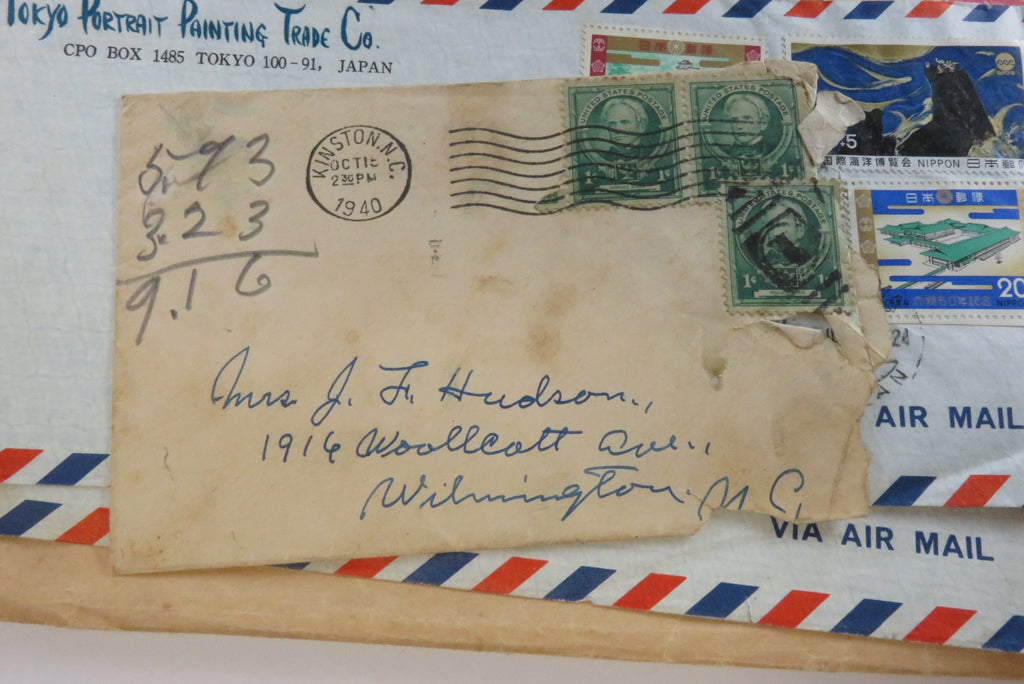 TOKYO PORTRAIT PAINTING TRADE CO.
CPO BOX 1485 TOKYO 100-91, JAPAN
日本郵便
国際海洋博覧会 NIPPON 日本郵便
+5
日本郵便
20
NIPPO
24
AIR MAIL
VIA AIR MAIL
UNITED STATES POSTAGE
1¢ 1¢
UNITED STATES POSTAGE
1¢
1¢ 1¢
KINSTON, N.C.
OCT 15
2 30 PM
1940
5.93
3.23
9.16
Mrs. J. F. Hudson.,
1916 Woollcott Ave.,
Wilmington, N.C.